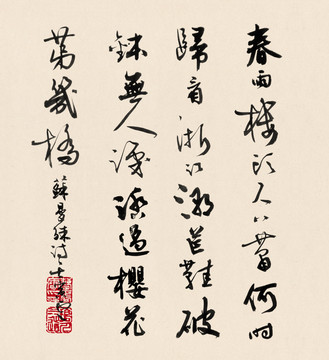 春雨樓頭尺八簫何時
歸看浙江潮芒鞋破
鉢無人識踏過櫻花
第幾橋
蘇曼殊詩